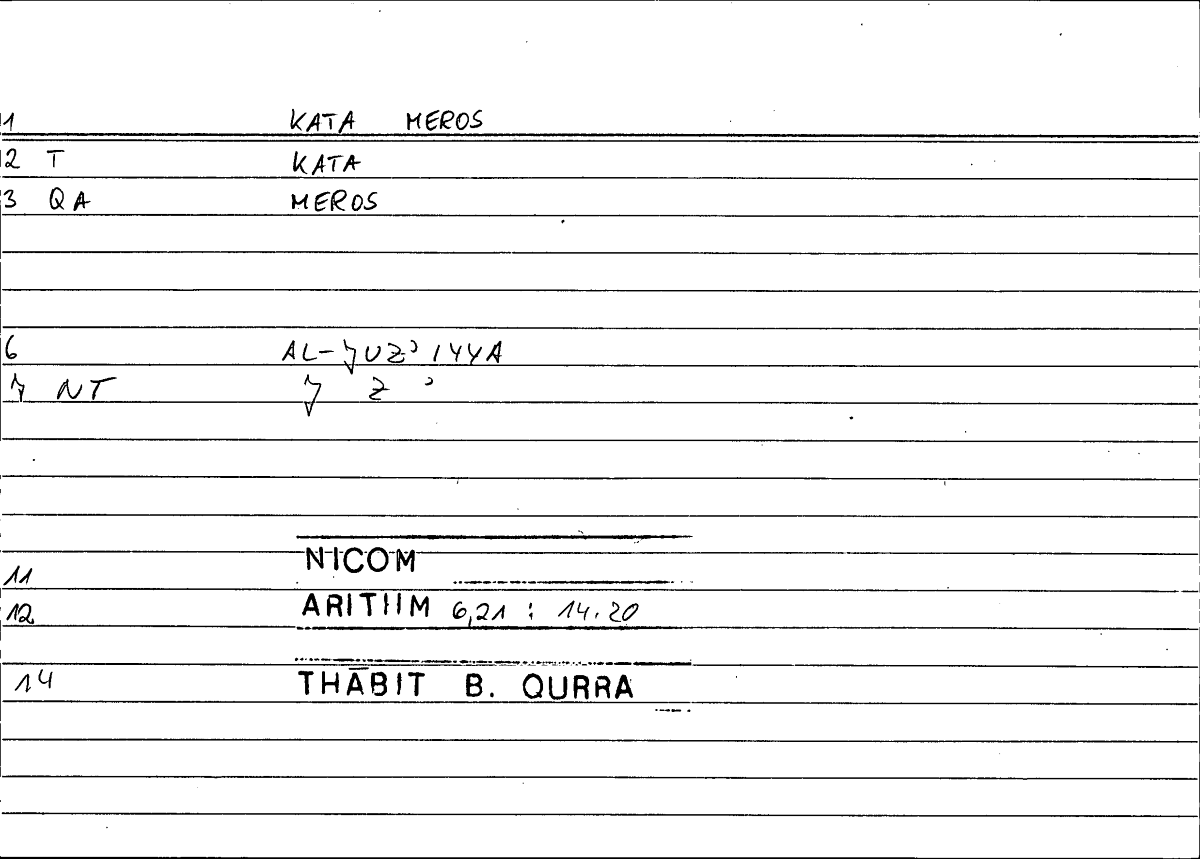 1 KATA MEROS
2 T KATA
3 QA MEROS
6 AL-ǦUZʾIYYA
Ǧ NT Ǧ Z ʾ
11 NICOM
12 ARITHM 6,21 : 14.20
14 THĀBIT B. QURRA